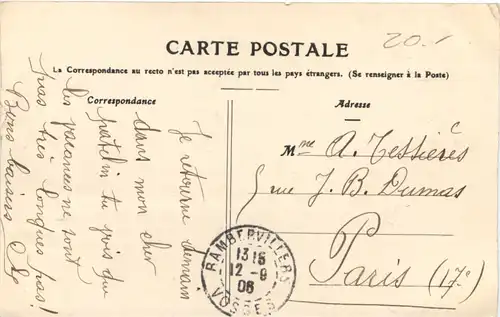 CARTE POSTALE
20.
La Correspondance au recto n'est pas acceptée par tous les pays étrangers. (Se renseigner à la Poste)
Correspondance
Adresse
Je retourne demain
dans mon cher
patelin tu vois que
les vacances ne sont
pas très longues pas!
Bons baisers
Mme A. Tessières
5 rue J. B. Dumas
Paris (17e)
RAMBERVILLERS
13 15
12 - 9
06
VOSGES